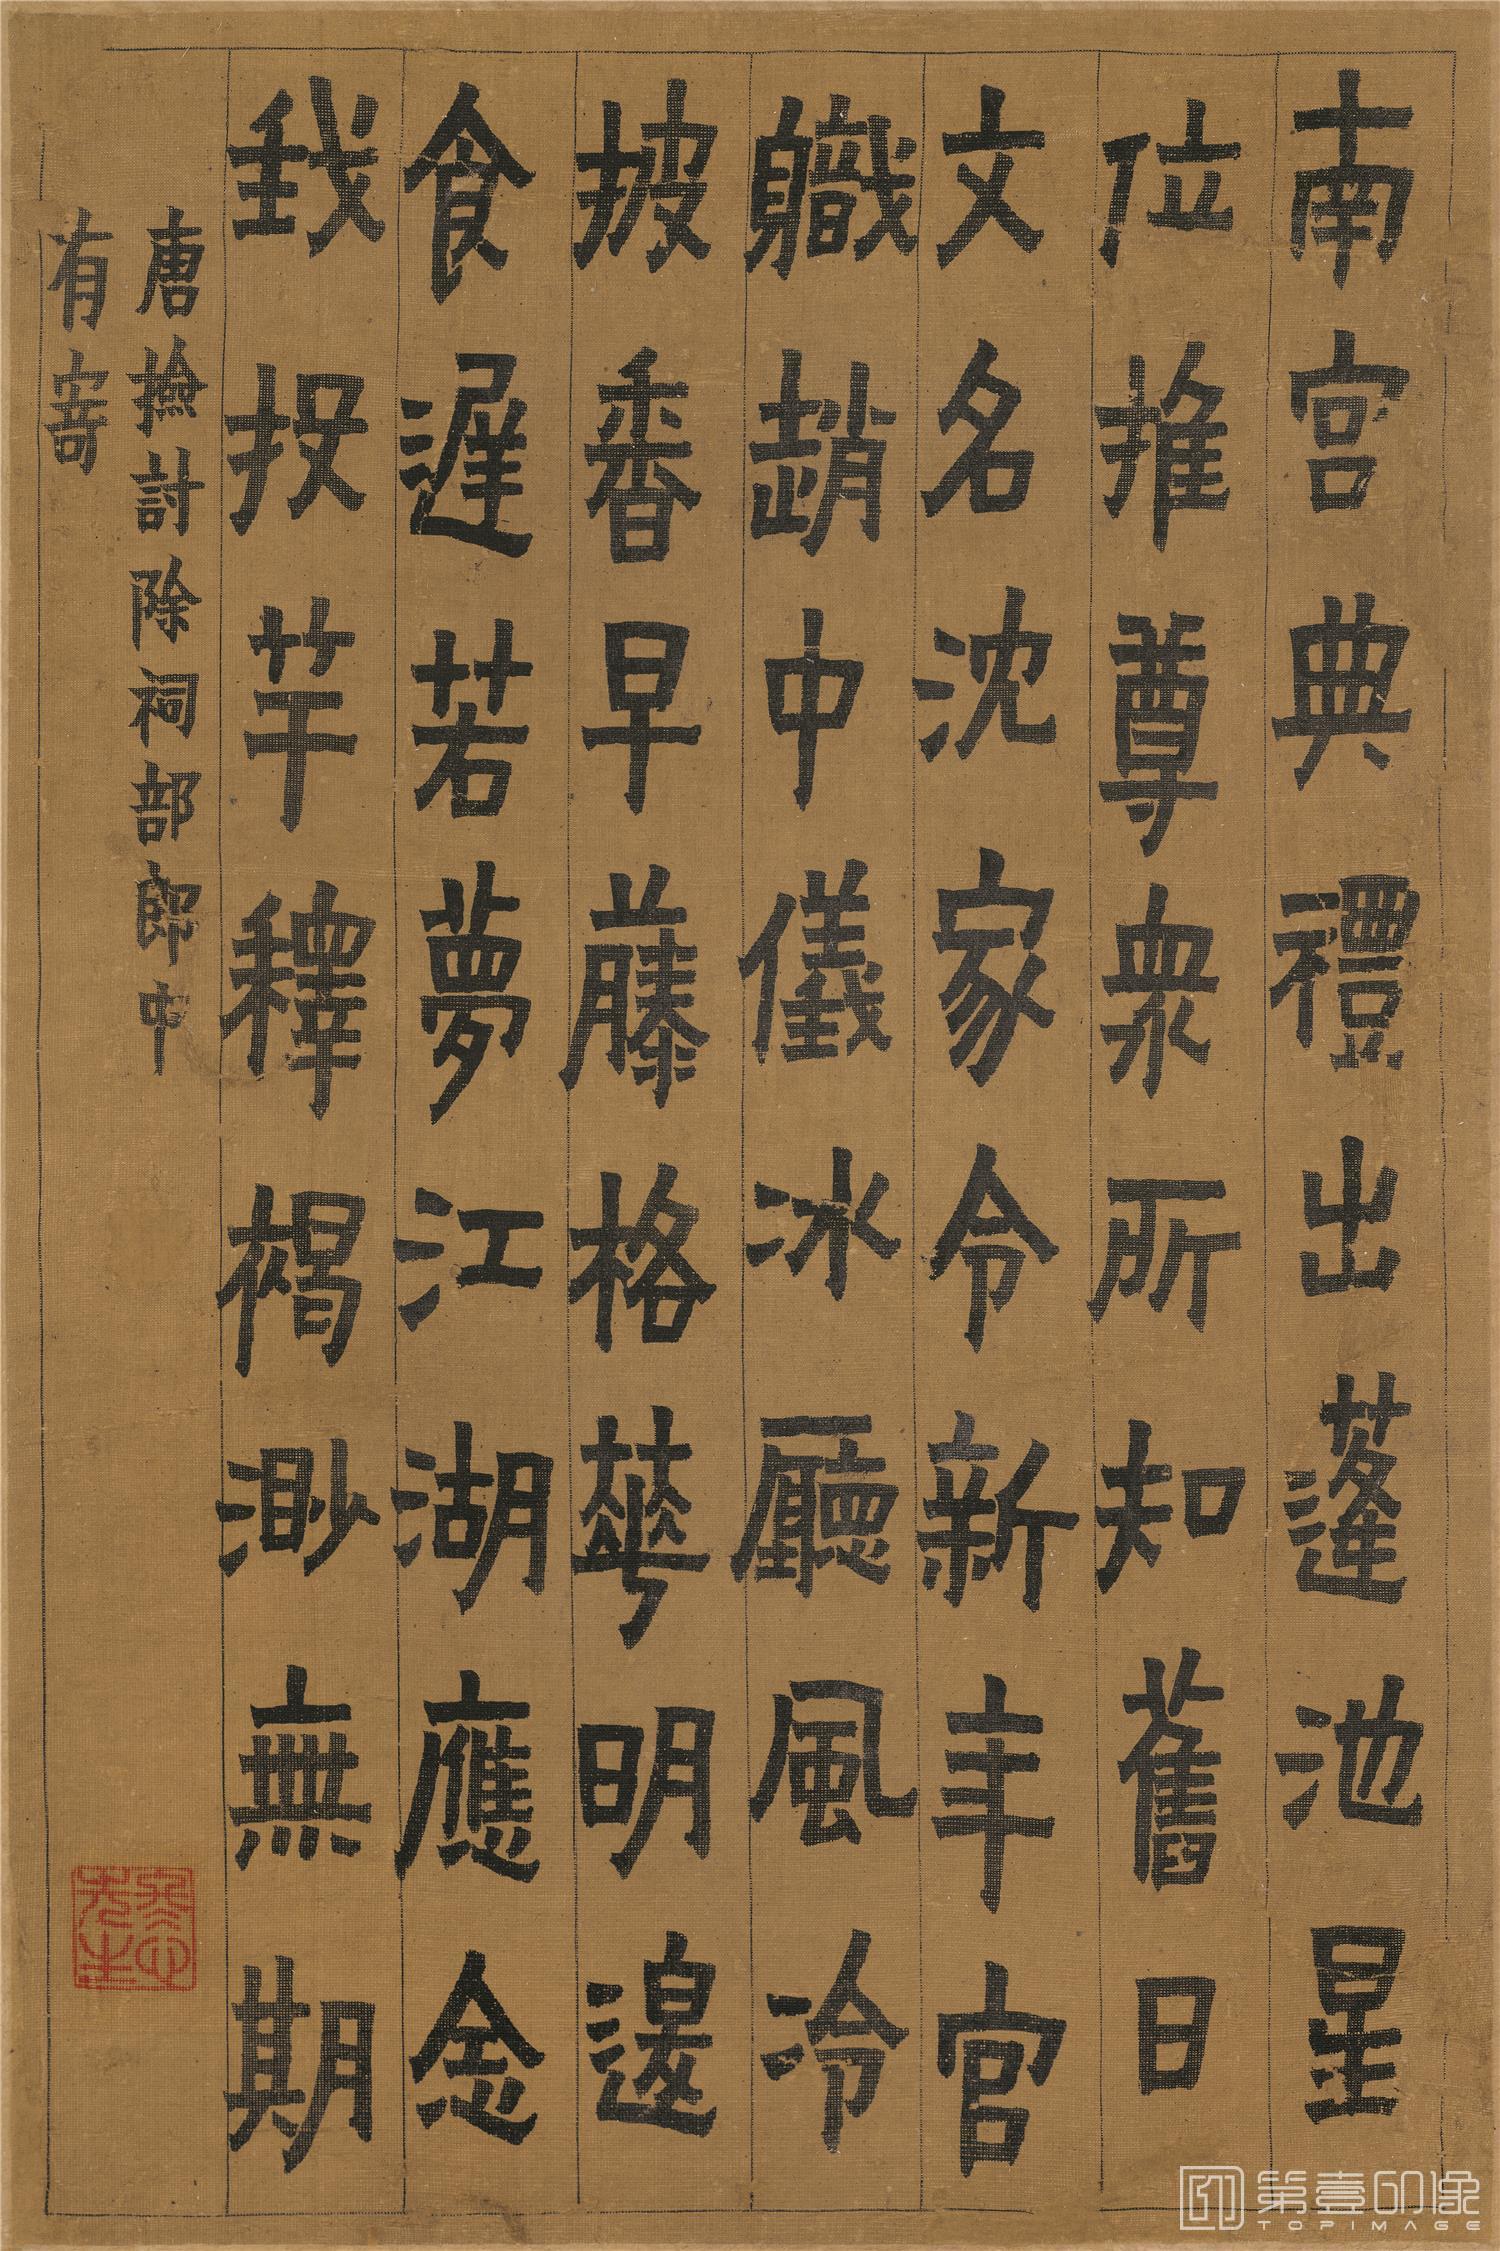 南宮典禮出蓬池星
位推尊眾所知舊日
文名沈家令新年官
職趙中儀冰廳風冷
披香早藤格華明退
食遲若夢江湖應念
我投竿釋褐渺無期
唐撿討除祠部郎中
有寄
冬心先生
第壹印像
TOPIMAGE